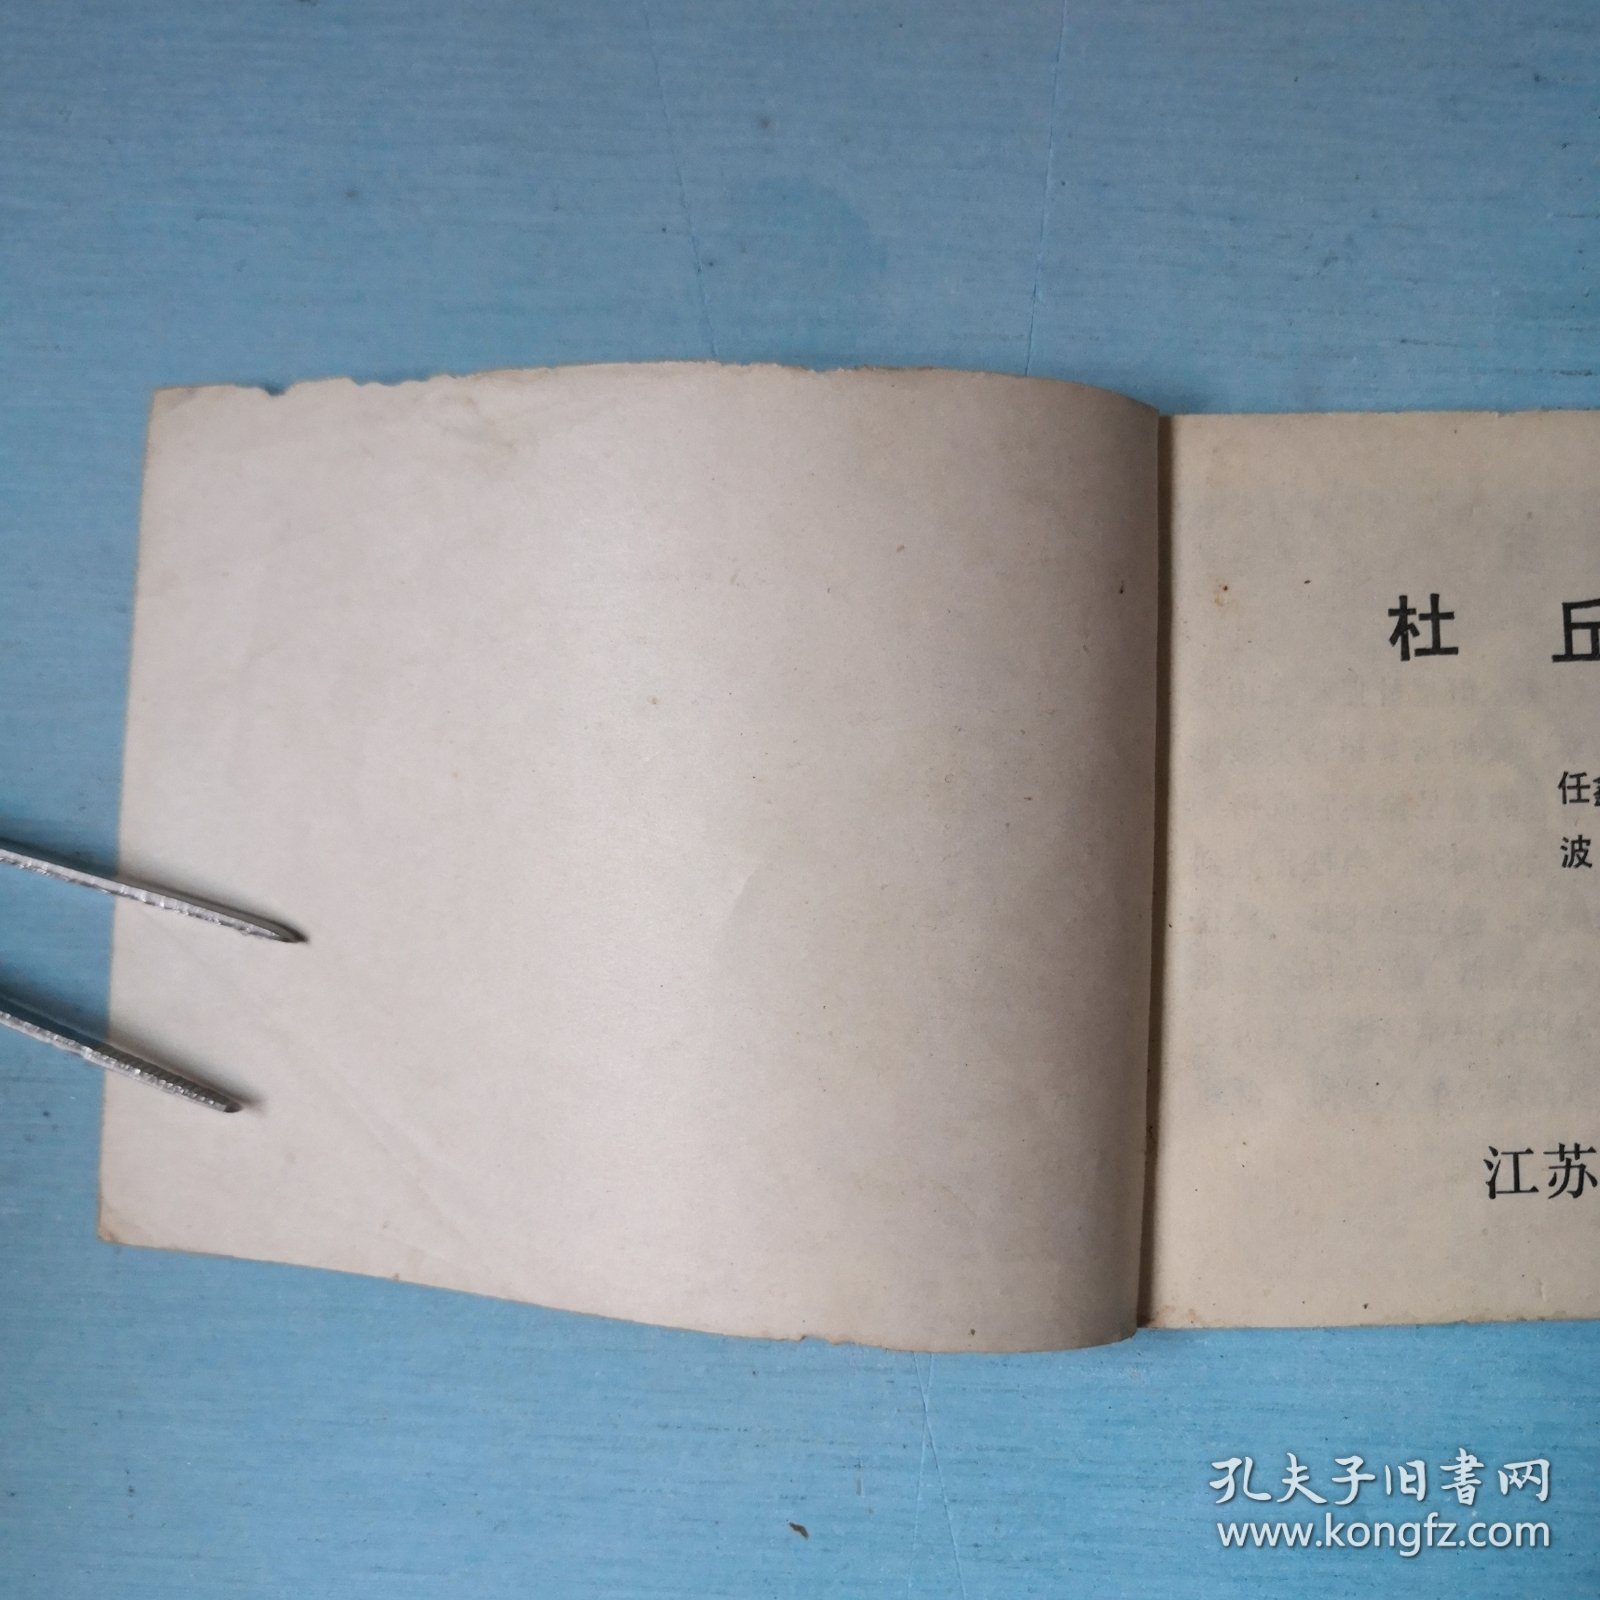 杜 丘
任
波
江苏
孔夫子旧书网
www.kongfz.com